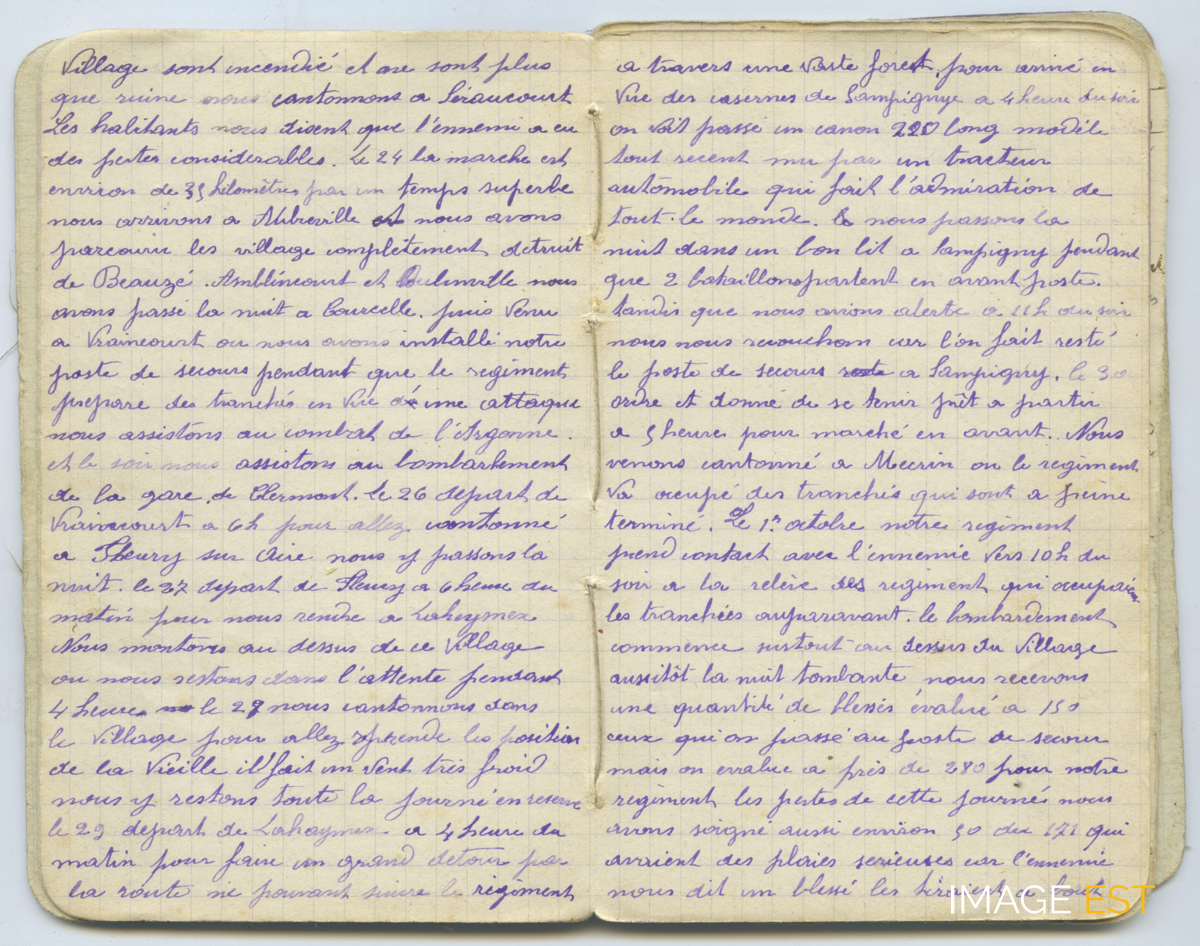 Village sont incendié et ne sont plus
que ruine nous cantonnons a Séraucourt
Les habitants nous disent que l'ennemi a eu
des pertes considerables. Le 24 la marche est
environ de 35 kilomètres par un temps superbe
nous arrivons a Aubreville et nous avons
parcouru les village complètement detruit
de Beauzé. Amblincourt et Boulinville nous
avons passé la nuit a Courcelle. puis Venu
a Vraincourt ou nous avons installé notre
poste de secours pendant que le regiment
prepare des tranchés en Vue d'une attaque
nous assistons au combat de l'Argonne.
et le soir nous assistons au bombartement
de la gare de Clermont. le 26 depart de
Vraincourt a 6h pour allez cantonné
a Fleury sur Aire nous y passons la
nuit. le 27 depart de Fleury a 6 heure du
matin pour nous rendre a Lahaymex
Nous montons au dessus de ce Village
ou nous restons dans l'attente pendant
4 heure le 28 nous cantonnons dans
le Village pour allez prende les position
de la Vieille il fait un Vent très froid
nous y restons toute la journé en reserve
le 29 depart de Lahaymex a 4 heure du
matin pour faire un grand detour par
la route ne pouvant suivre le regiment
a travers une vaste forest, pour arrivé en
Vue des casernes de Sampignye a 4 heure du soir
on voit passé un canon 220 long modèle
tout recent mu par un tracteur
automobile qui fait l'admiration de
tout le monde. nous passons la
nuit dans un bon lit a Sampigny pendant
que 2 bataillons partent en avant poste.
tandis que nous avions alerte a 11h du soir
nous nous recouchons car l'on fait resté
le poste de secours a Sampigny. le 30
ordre et donné de se tenir prêt a partir
a 5 heure pour marché en avant. Nous
venons cantonné a Mecrin ou le regiment
Va occupé des tranchés qui sont a peine
terminé. Le 1er octobre notre regiment
prend contact avec l'ennemie Vers 10h du
soir a la relève des regiment qui occupaien
les tranchées auparavant. le bombardement
commence surtout au dessus du Village
aussitôt la nuit tombante nous recevons
une quantité de blessés évalué a 150
ceux qui on passé au poste de secour
mais on evalue a près de 280 pour notre
regiment les pertes de cette journé nous
avons soigné aussi environ 50 du 171 qui
avaient des plaies serieuses car l'ennemie
nous dit un blessé les tiraient a bout
IMAGE EST